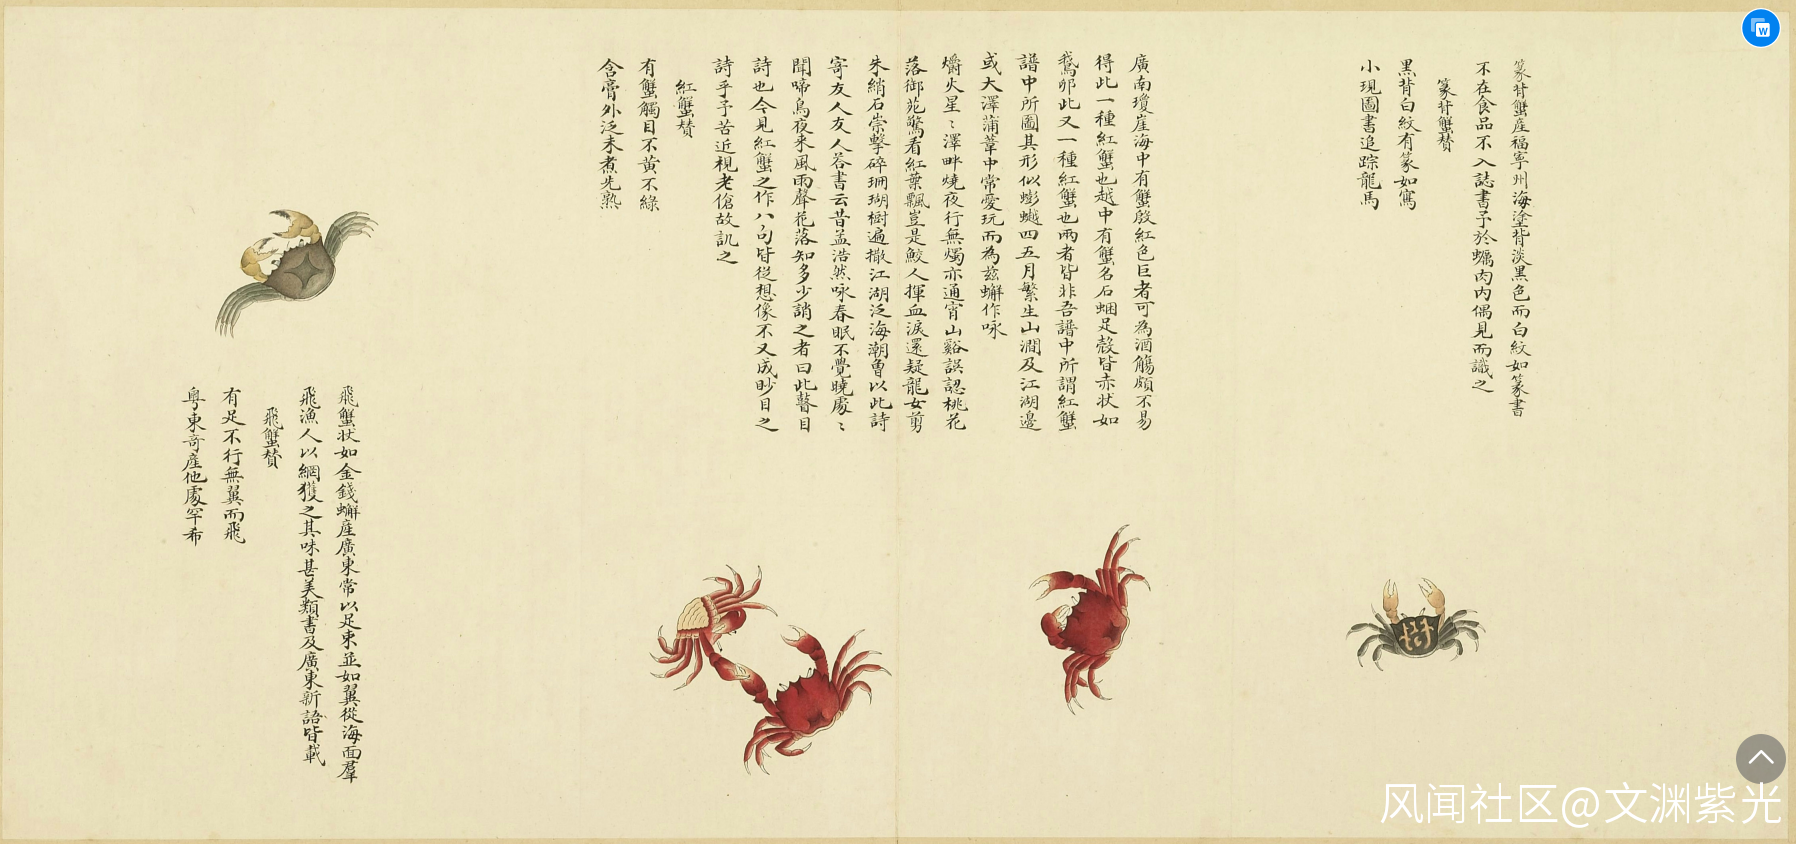 篆背蟹產福寧州海塗背淡黑色而白紋如篆書
不在食品不入誌書予於蠣肉內偶見而識之
篆背蟹贊
黑背白紋有篆如寫
小現圖書追踪龍馬
廣南瓊崖海中有蟹殷紅色巨者可為酒觴頗不易
得此一種紅蟹也越中有蟹名石蜠足殼皆赤狀如
鵞卵此又一種紅蟹也兩者皆非吾譜中所謂紅蟹
譜中所圖其形似蟛蜞四五月繁生山澗及江湖邊
或大澤蒲葦中常愛玩而為茲蠏作咏
爝火星〻澤畔燒夜行無燭亦通宵山谿誤認桃花
落御苑驚看紅葉飄豈是鮫人揮血淚還疑龍女剪
朱綃石崇擊碎珊瑚樹遍撒江湖泛海潮曾以此詩
寄友人友人答書云昔孟浩然咏春眠不覺曉處〻
聞啼鳥夜來風雨聲花落知多少誚之者曰此瞽目
詩也今見紅蟹之作八句皆從想像不又成眇目之
詩乎予苦近視老傖故訕之
紅蟹贊
有蟹觸目不黄不綠
含膏外泛未煮先熟
飛蟹狀如金錢蠏產廣東常以足束並如翼從海面羣
飛漁人以網獲之其味甚美類書及廣東新語皆載
飛蟹贊
有足不行無翼而飛
粵東竒產他處罕希
风闻社区@文渊紫光